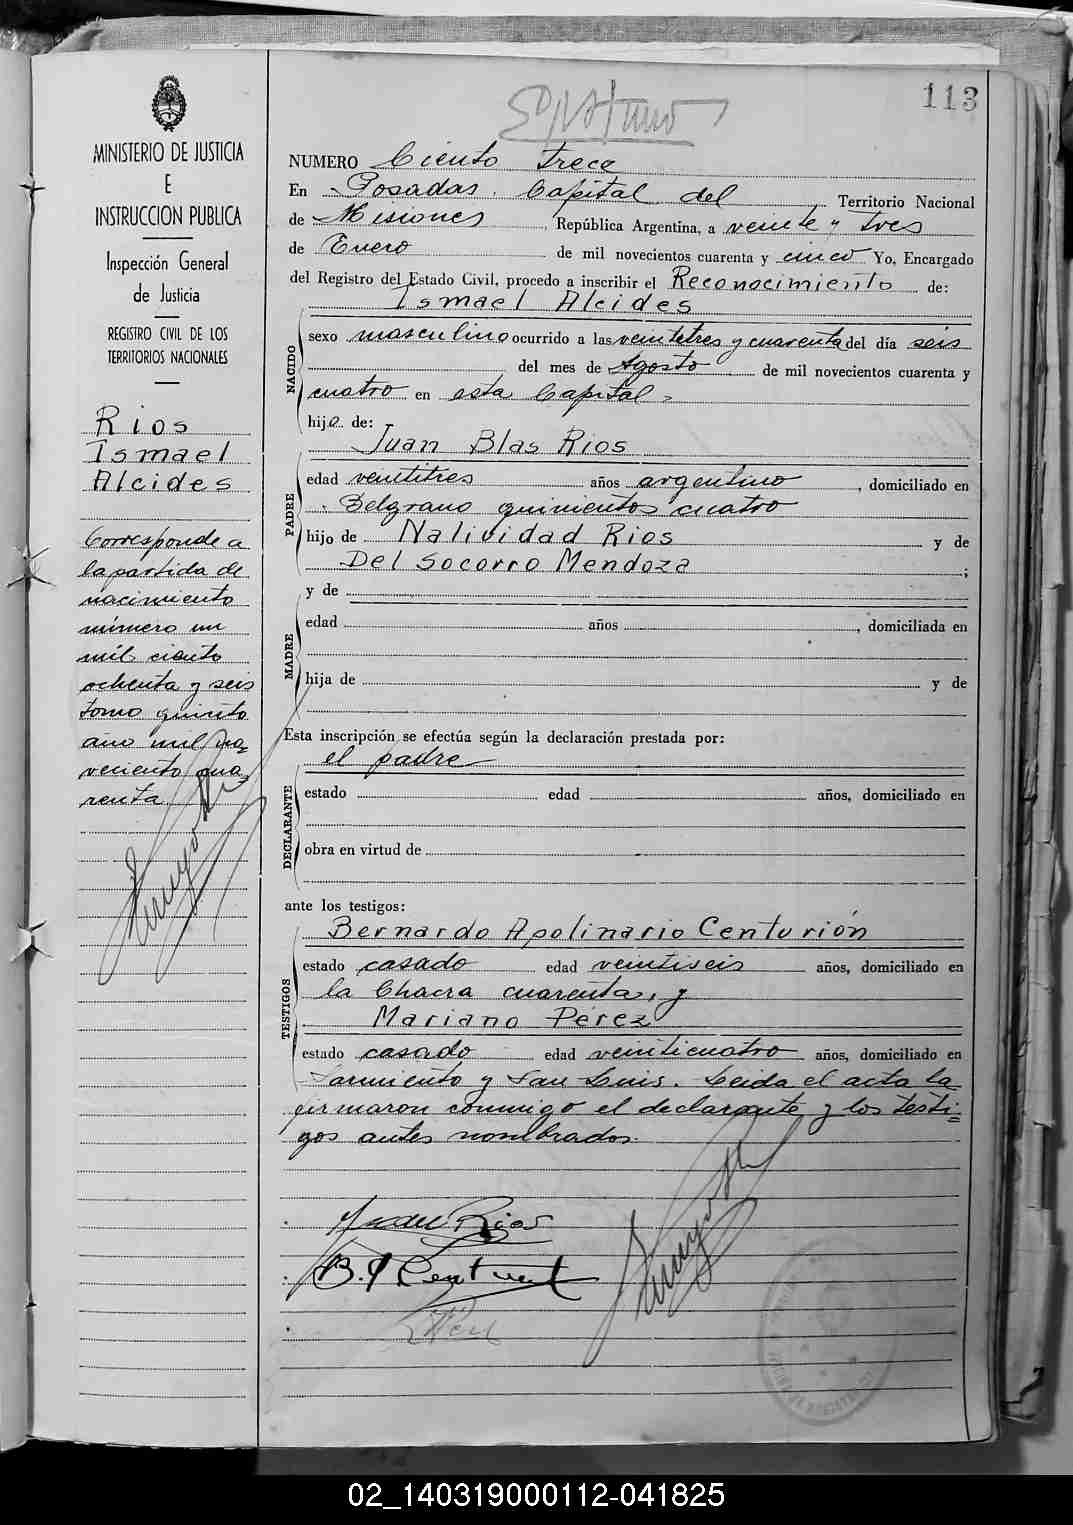 113
MINISTERIO DE JUSTICIA
E
INSTRUCCION PUBLICA
Inspección General
de Justicia
REGISTRO CIVIL DE LOS
TERRITORIOS NACIONALES
Rios
Ismael
Alcides
Corresponde a
la partida de
nacimiento
número un
mil ciento
ochenta y seis
tomo quinto
año mil no-
veciento cua-
renta
NUMERO Ciento trece
En Posadas. Capital del Territorio Nacional
de Misiones, República Argentina, a veinte y tres
de Enero de mil novecientos cuarenta y cinco Yo, Encargado
del Registro del Estado Civil, procedo a inscribir el Reconocimiento de:
Ismael Alcides
NACIDO
sexo masculino ocurrido a las veintetres y cuarenta del día seis
del mes de Agosto de mil novecientos cuarenta y
cuatro en esta Capital
hijo de:
Juan Blas Rios
PADRE
edad veintitres años argentino, domiciliado en
Belgrano quinientos cuatro
hijo de Natividad Rios y de
Del Socorro Mendoza ;
y de
MADRE
edad años, domiciliada en
hija de y de
Esta inscripción se efectúa según la declaración prestada por:
el padre
DECLARANTE
estado edad años, domiciliado en
obra en virtud de
ante los testigos:
Bernardo Apolinario Centurión
TESTIGOS
estado casado edad veintiseis años, domiciliado en
la Chacra cuarenta, y
Mariano Pérez
estado casado edad veinticuatro años, domiciliado en
Sarmiento y San Luis. Leida el acta la
firmaron conmigo el declarante y los testi-
gos antes nombrados.
Juan Rios
02_140319000112-041825